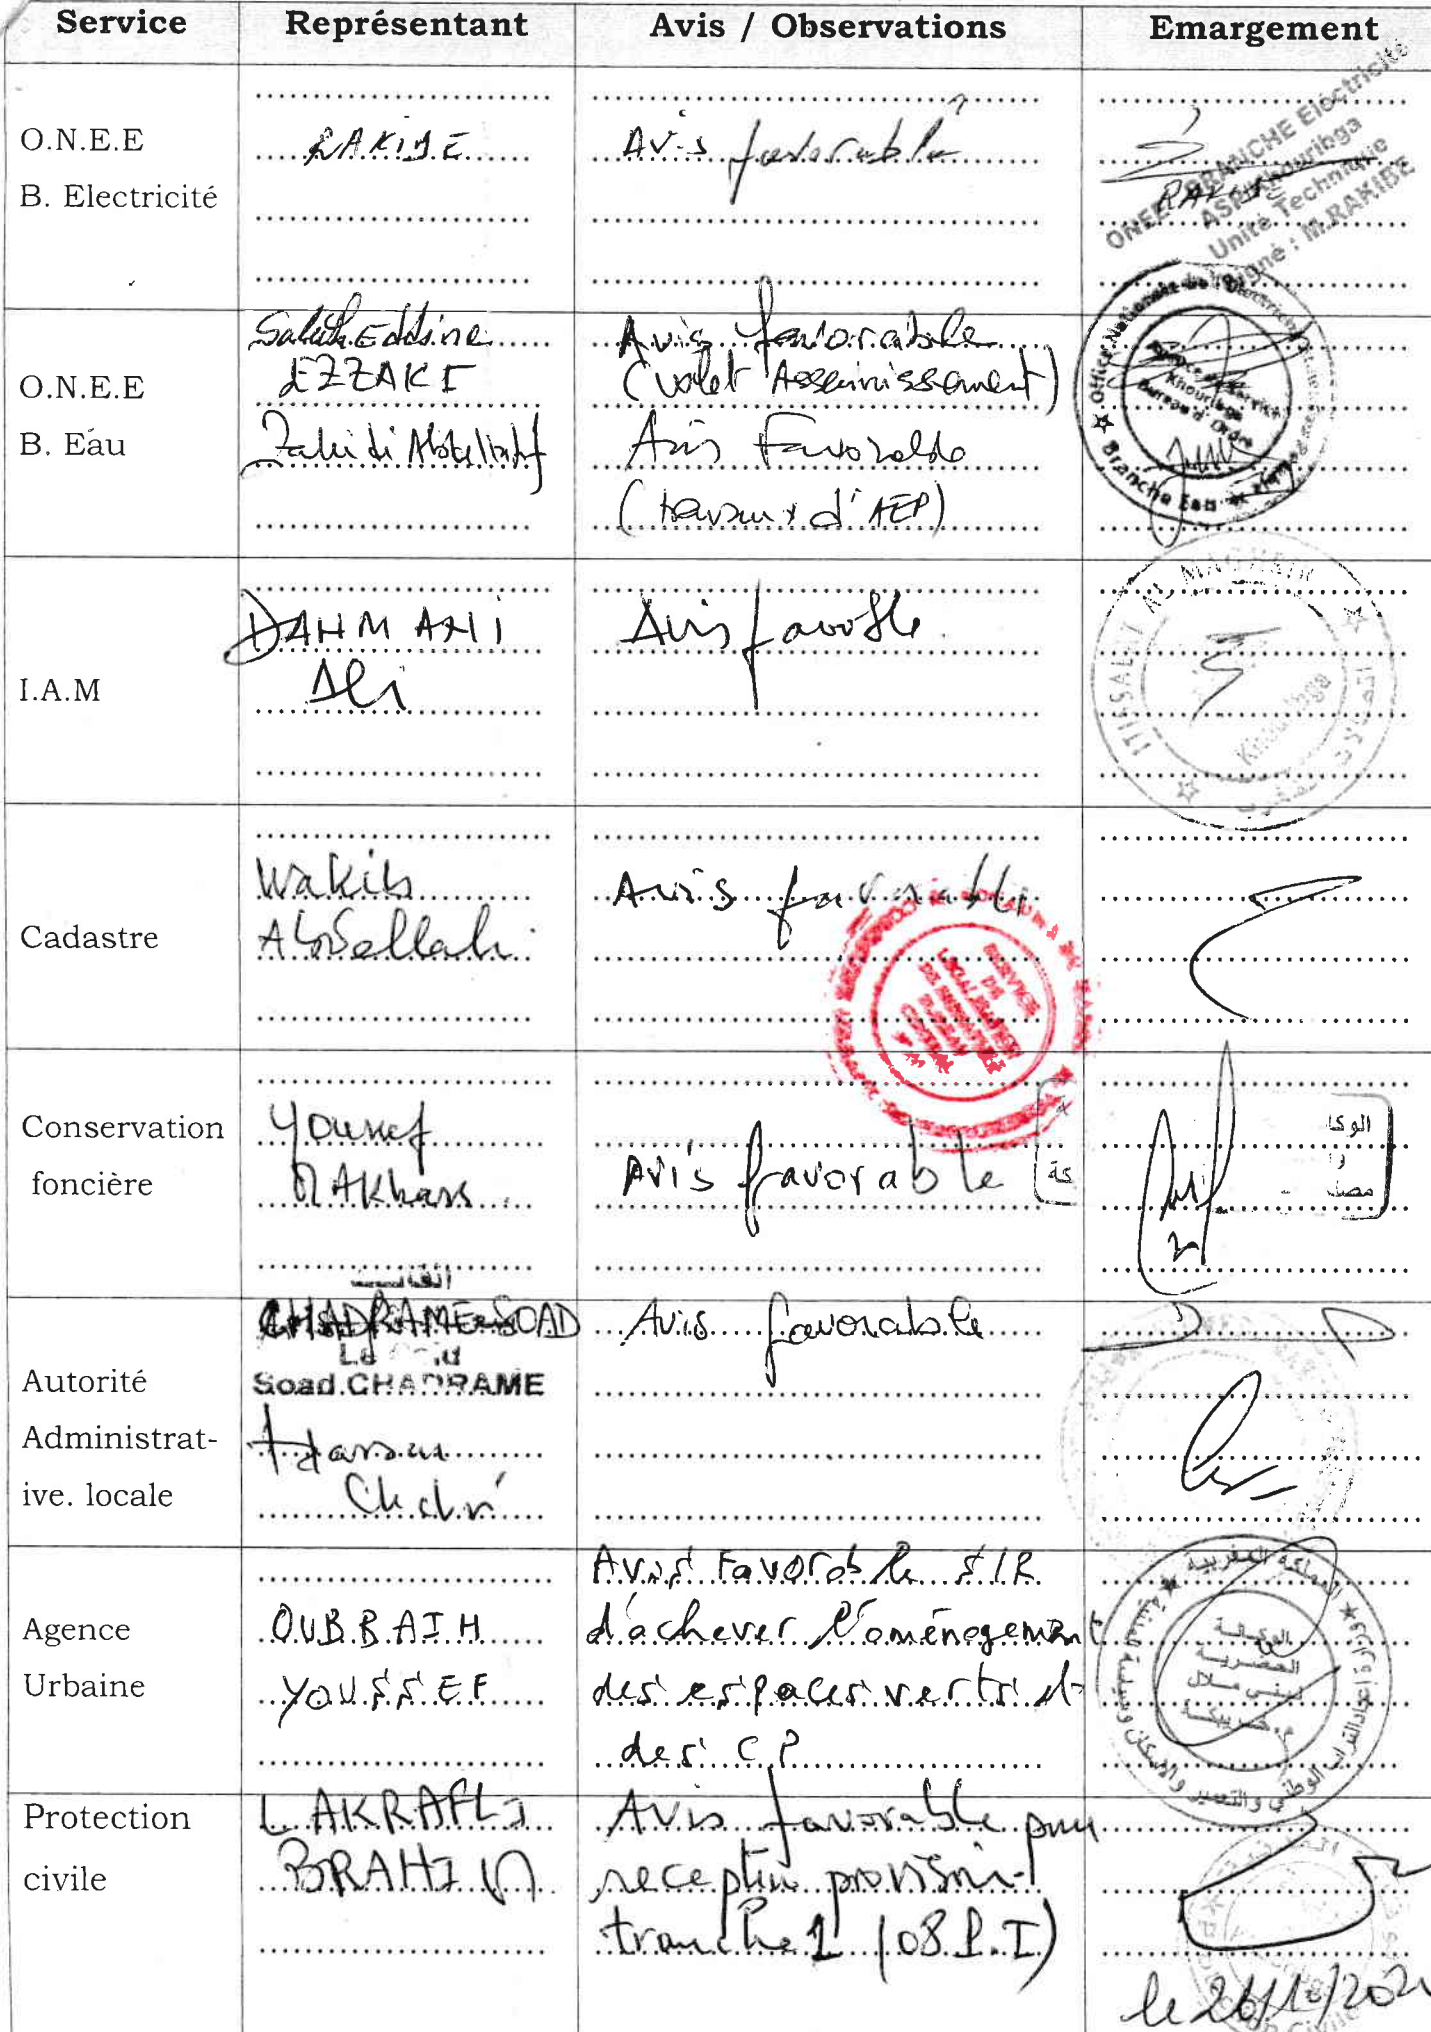 Service Représentant Avis / Observations Emargement
O.N.E.E
B. Electricité
RAKIBE
Avis favorable
ONEE BRANCHE Electricité
ASP Khouribga
Unité Technique
Signé : M. RAKIBE
O.N.E.E
B. Eau
Salah Eddine
EZZAKI
Zahidi Abdellatif
Avis favorable
(volet Assainissement)
Avis Favorable
(travaux d'AEP)
Branche Eau
I.A.M
DAHMANI
Ali
Avis favorable
ITISSALAT AL MAGHRIB
Khouribga
Cadastre
Wakib
Abdellah
Avis favorable
SERVICE
DE
Conservation
foncière
Youssef
Avis favorable
كة
الوكا
وا
مصل
Autorité
Administrat-
ive. locale
CHADRAME SOAD
Soad CHADRAME
Hassan
Avis favorable
Agence
Urbaine
OUBBAIH
YOUSSEF
Avis Favorable S/R
d'achever l'aménagement
des espaces verts et
des CP
المملكة المغربية
الوكالة
الحضرية
لبني ملال
م. خريبكة
Protection
civile
LAKRAFLI
BRAHIM
Avis favorable pour
reception provisoire
tranche 1 (08 P.I)
le 26/10/202